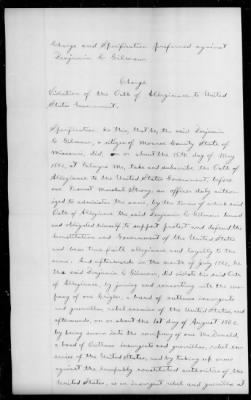 Charge and Specification preferred against
Benjamin C. Gilmore.
Charge
Violation of the Oath of Allegiance to United
States Government.
Specification. In this, that he, the said Benjamin
C. Gilmore, a citizen of Monroe County State of
Missouri, did, on or about the 15th day of May
1862, at Palmyra Mo, take and subscribe the Oath of
Allegiance to the United States Government, before
one Provost Marshal Strong, an officer duly author-
ized to administer the same, by the terms of which said
Oath of Allegiance the said Benjamin C. Gilmore bound
and obligated himself to support protect and defend the
Constitution and Government of the United States
and bear true faith allegiance and loyalty to the
same. And afterwards in the month of July 1862, he
the said Benjamin C. Gilmore, did violate his said Oath
of Allegiance, by joining and consorting with the com-
pany of one a band of outlaws insurgents
and guerrillas rebel enemies of the United States, and
afterwards, on or about the 1st day of August 1862
by being sworn into the company of one McDonald,
a band of Outlaws Insurgents and guerrillas, rebel ene-
mies of the United States, and by taking up arms
against the lawfully constituted authorities of the
United States, as an insurgent rebel and guerrilla at